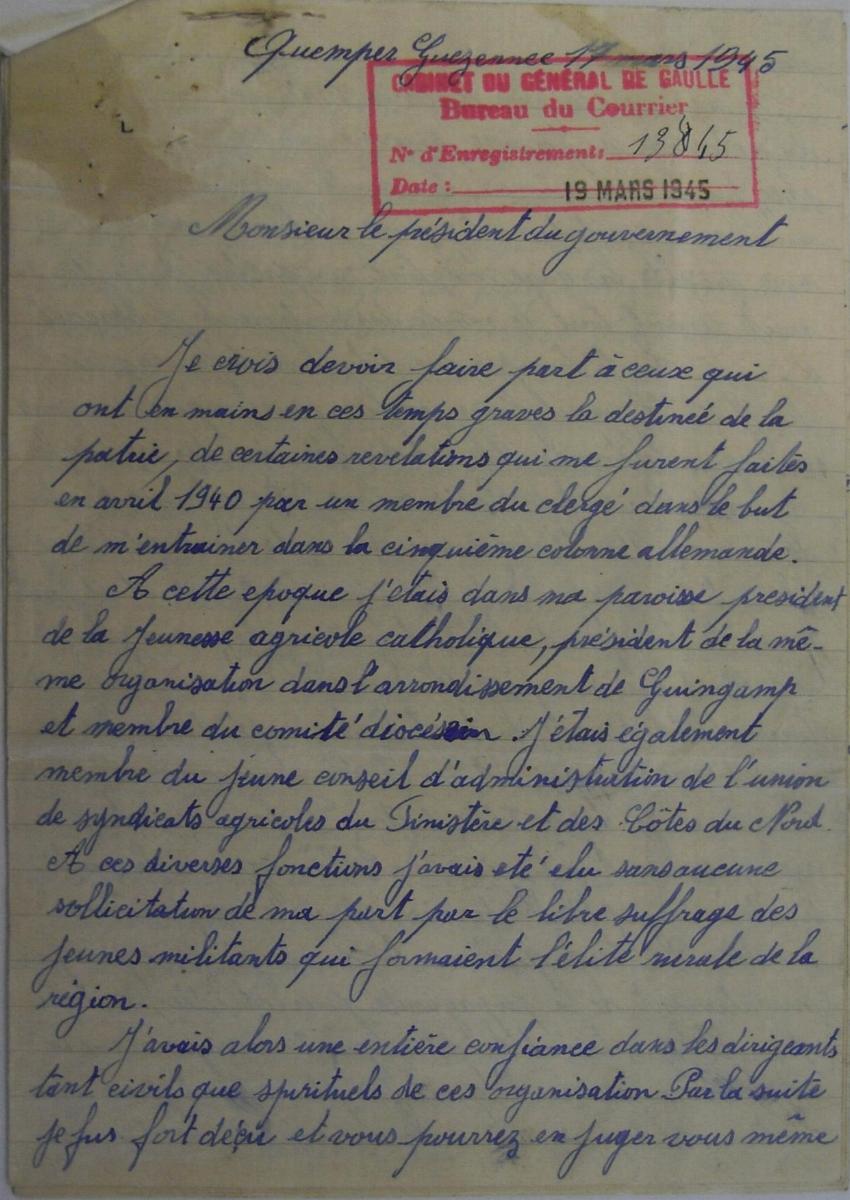 Quemper Guezennec 17 mars 1945
CABINET DU GÉNÉRAL DE GAULLE
Bureau du Courrier
N° d'Enregistrement: 13845
Date : 19 MARS 1945
Monsieur le président du gouvernement
Je crois devoir faire part à ceux qui
ont en mains en ces temps graves la destineé de la
patrie, de certaines revelations qui me furent faites
en avril 1940 par un membre du clergé dans le but
de m'entrainer dans la cinquième colonne allemande.
A cette epoque j'etais dans ma paroisse president
de la Jeunesse agricole catholique, président de la mê-
me organisation dans l'arrondissement de Guingamp
et membre du comité diocésain. J'étais également
membre du jeune conseil d'administration de l'union
de syndicats agricoles du Finistère et des Côtes du Nord.
A ces diverses fonctions j'avais eté elu sans aucune
sollicitation de ma part par le libre suffrage des
jeunes militants qui formaient l'élite rurale de la
région.
J'avais alors une entière confiance dans les dirigeants
tant civils que spirituels de ces organisation. Par la suite
je fus fort déçu et vous pourrez en juger vous même